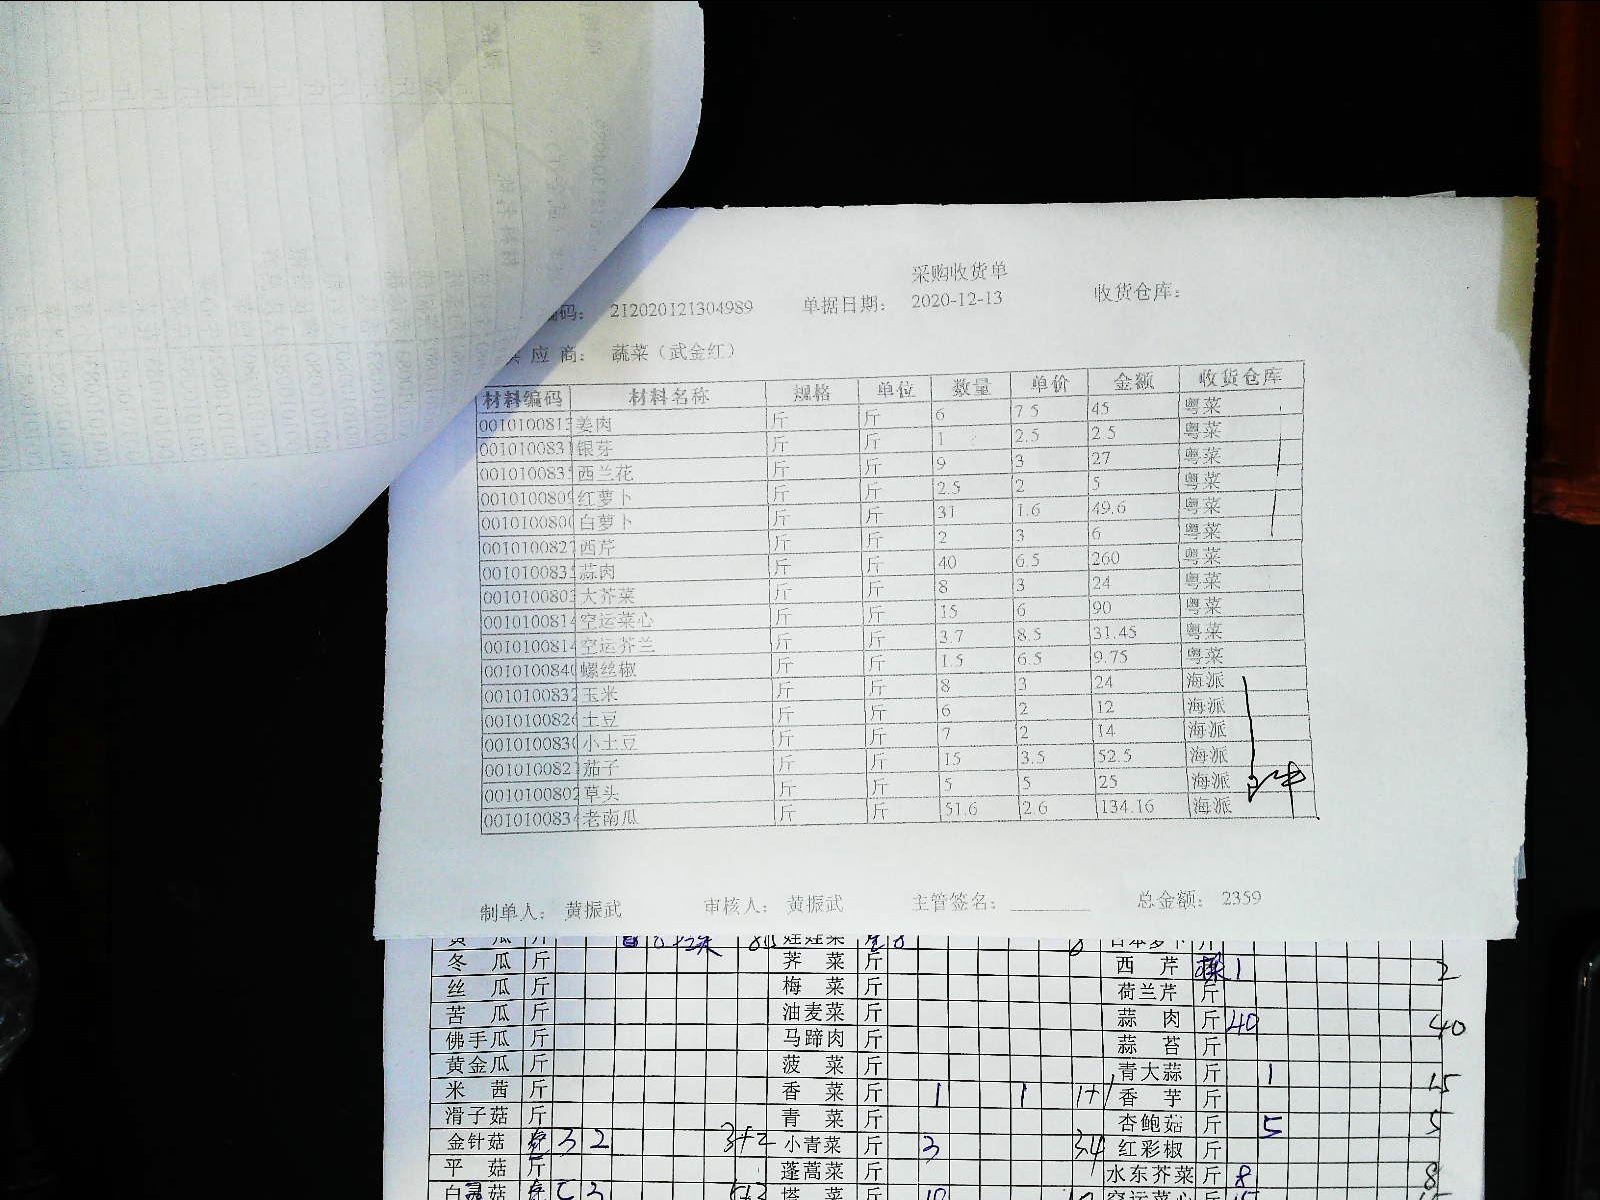 采购收货单
码： 212020121304989 单据日期： 2020-12-13 收货仓库：
应 商： 蔬菜（武金红）
材料编码 材料名称 规格 单位 数量 单价 金额 收货仓库
001010081 姜肉 斤 斤 6 7.5 45 粤菜
001010083 银芽 斤 斤 1 2.5 2.5 粤菜
001010083 西兰花 斤 斤 9 3 27 粤菜
001010080 红萝卜 斤 斤 2.5 2 5 粤菜
001010080 白萝卜 斤 斤 31 1.6 49.6 粤菜
001010082 西芹 斤 斤 2 3 6 粤菜
001010083 蒜肉 斤 斤 40 6.5 260 粤菜
001010080 大芥菜 斤 斤 8 3 24 粤菜
001010081 空运菜心 斤 斤 15 6 90 粤菜
001010081 空运芥兰 斤 斤 3.7 8.5 31.45 粤菜
001010084 螺丝椒 斤 斤 1.5 6.5 9.75 粤菜
001010083 玉米 斤 斤 8 3 24 海派
001010082 土豆 斤 斤 6 2 12 海派
001010083 小土豆 斤 斤 7 2 14 海派
001010082 茄子 斤 斤 15 3.5 52.5 海派
001010080 草头 斤 斤 5 5 25 海派
001010083 老南瓜 斤 斤 51.6 2.6 134.16 海派
制单人： 黄振武 审核人： 黄振武 主管签名： 总金额： 2359
黄 瓜 斤 娃娃菜 8 日本萝卜 斤
冬 瓜 斤 荠 菜 斤 西 芹 1 2
丝 瓜 斤 梅 菜 斤 荷兰芹 斤
苦 瓜 斤 油麦菜 斤 蒜 肉 斤 40 40
佛手瓜 斤 马蹄肉 斤 蒜 苔 斤
黄金瓜 斤 菠 菜 斤 青大蒜 斤 1
米 茜 斤 香 菜 斤 1 1 1+1 香 芋 斤
滑子菇 斤 青 菜 斤 杏鲍菇 斤 5 5
金针菇 3 2 3+2 小青菜 斤 3 红彩椒 斤
平 菇 斤 蓬蒿菜 斤 水东芥菜 斤 8 8
白灵菇 塔 菜 斤 10 空运菜心 斤 15